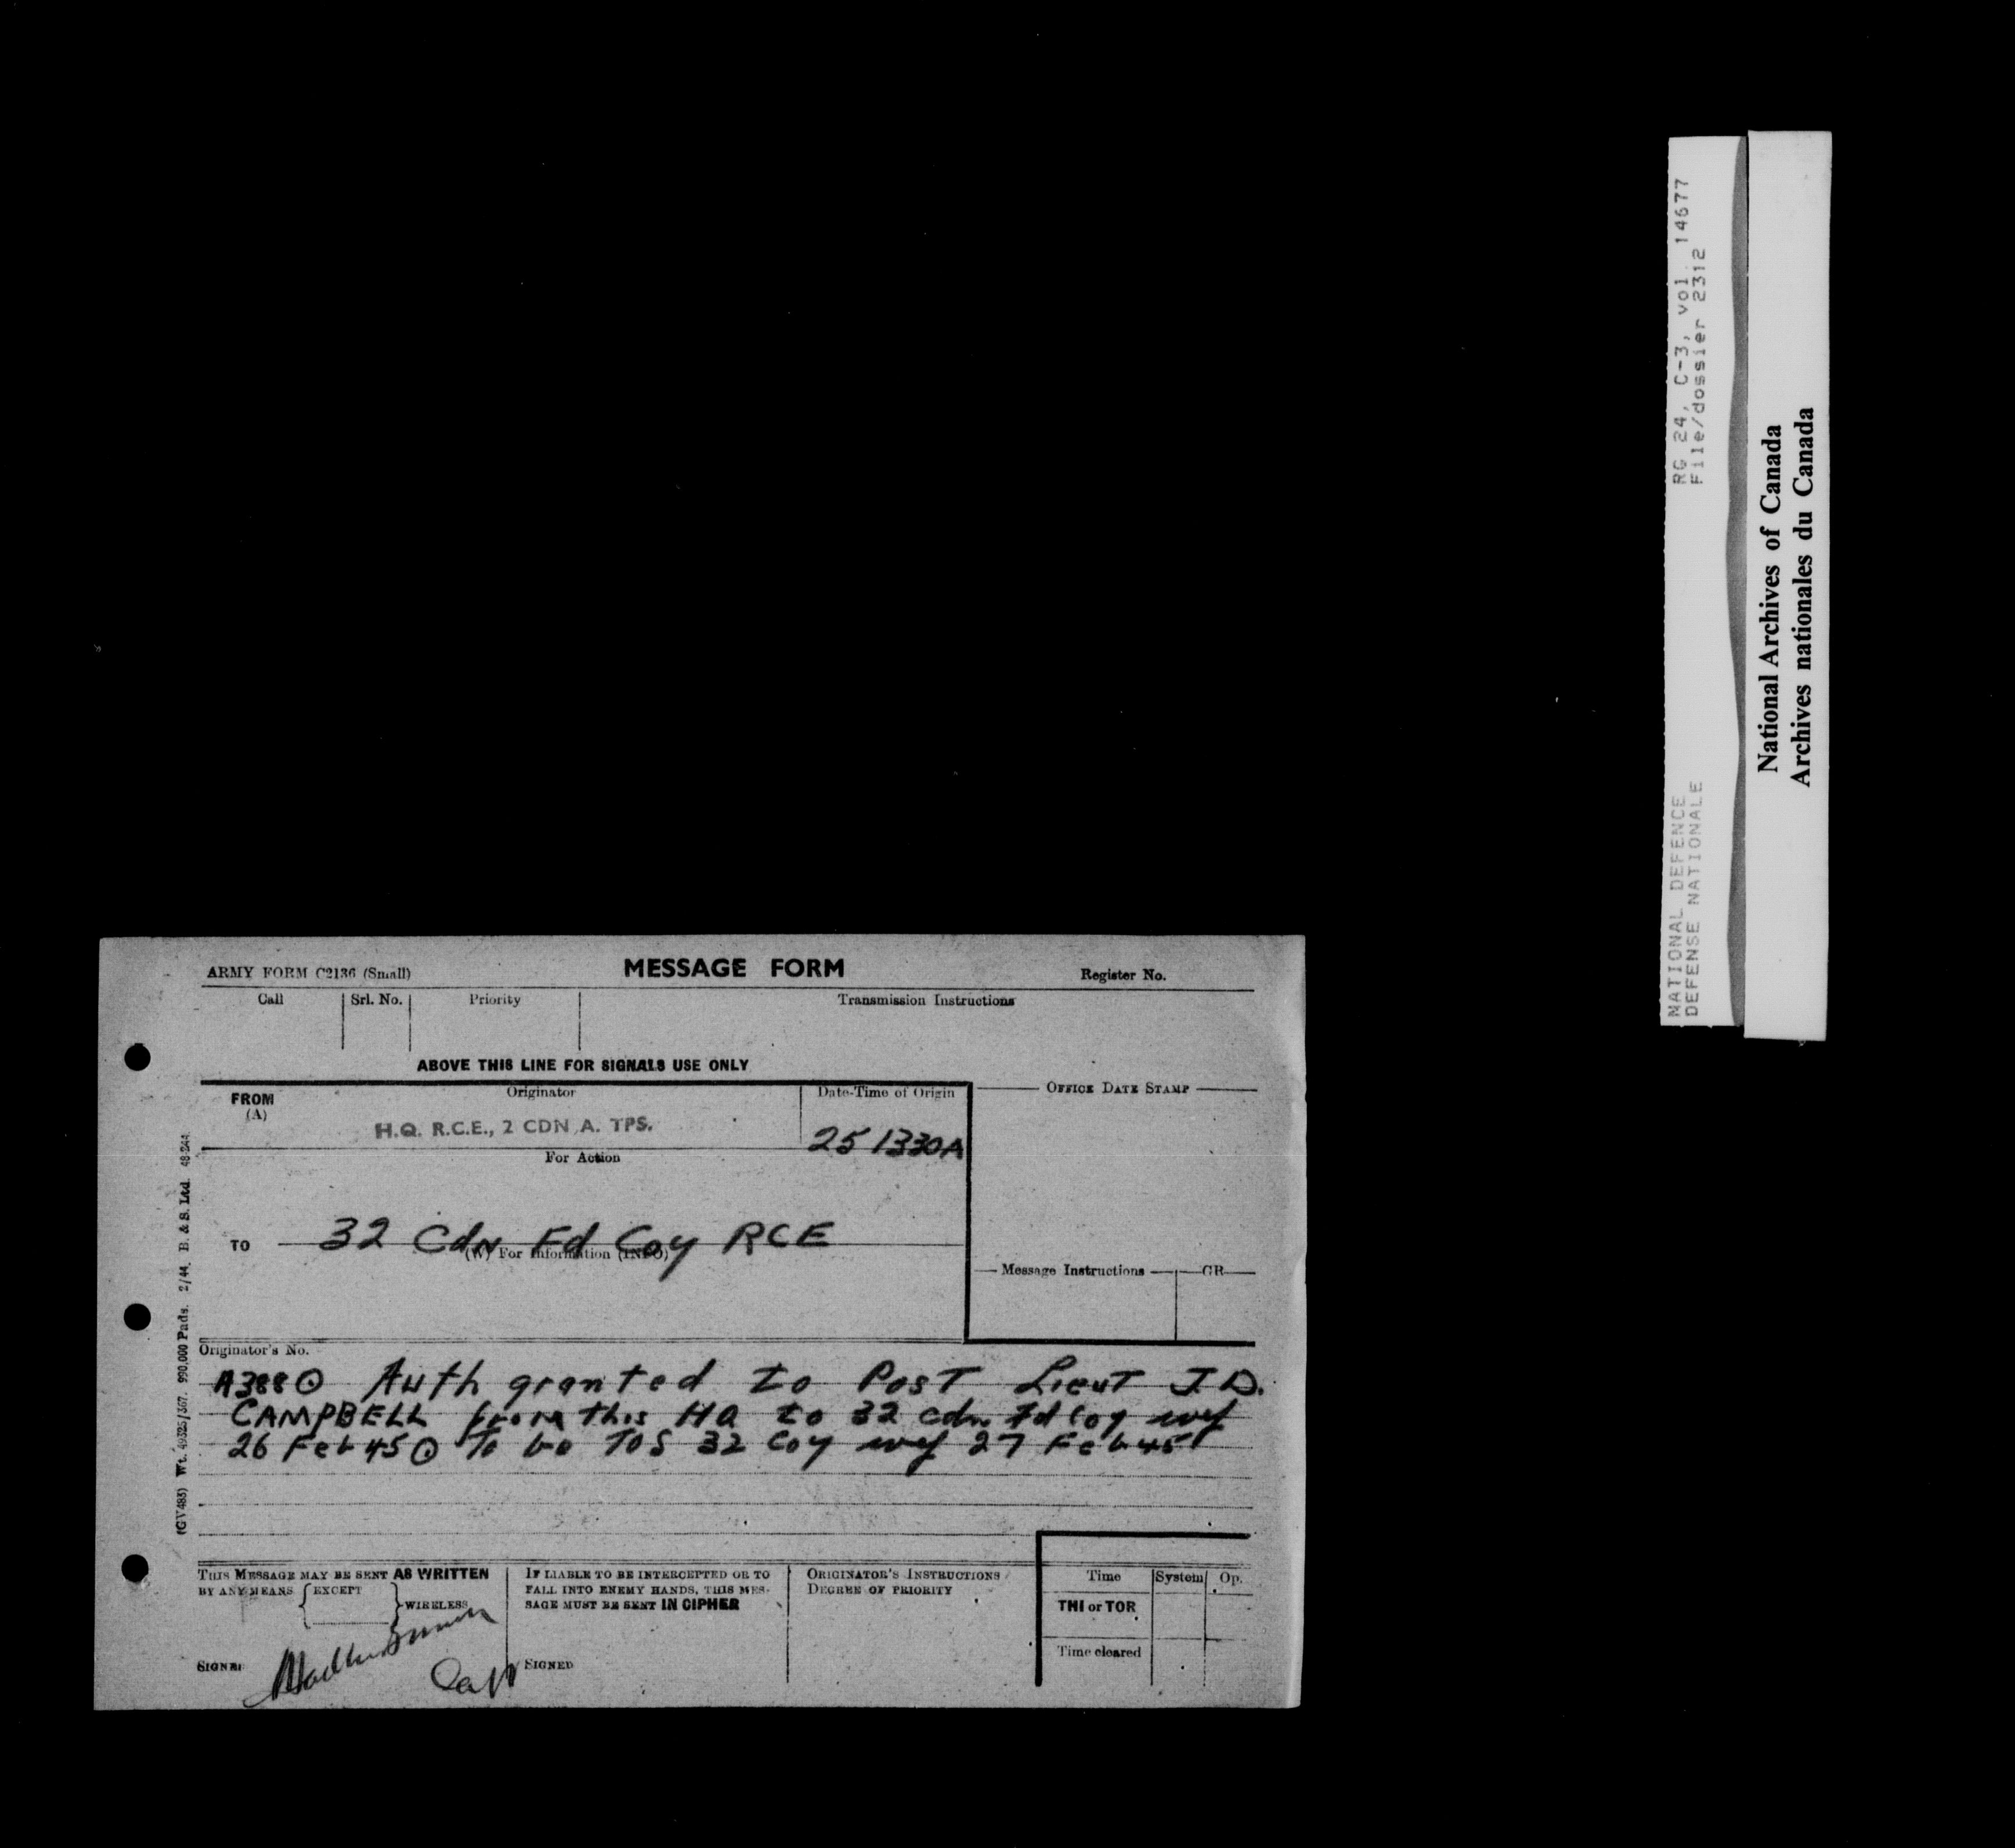 ARMY FORM C2136 (Small)
MESSAGE FORM
Register No.
Call
Srl. No.
Priority
Transmission Instructions
ABOVE THIS LINE FOR SIGNALS USE ONLY
FROM
(A)
Originator
H.Q. R.C.E., 2 CDN A. TPS.
Date-Time of Origin
25 1330A
OFFICE DATE STAMP
For Action
TO
32 Cdn Fd Coy RCE
(W) For Information (INFO)
Message Instructions
GR
Originator's No.
A388 ⊙ Auth granted to Post Lieut J.D.
CAMPBELL from this HQ to 32 cdn Fd Coy wef
26 Feb 45 ⊙ To be TOS 32 Coy wef 27 Feb 45
THIS MESSAGE MAY BE SENT AS WRITTEN
BY ANY MEANS { EXCEPT } WIRELESS
SIGNED
Capt
IF LIABLE TO BE INTERCEPTED OR TO
FALL INTO ENEMY HANDS, THIS MES-
SAGE MUST BE SENT IN CIPHER
SIGNED
ORIGINATOR'S INSTRUCTIONS
DEGREE OF PRIORITY
Time
System
Op.
THI or TOR
Time cleared
(GV483) Wt. 49325/367. 990,000 Pads. 2/44. B. & S. Ltd. 48-244.
NATIONAL DEFENCE
DEFENSE NATIONALE
RG 24, C-3, vol. 14677
File/dossier 2312
National Archives of Canada
Archives nationales du Canada